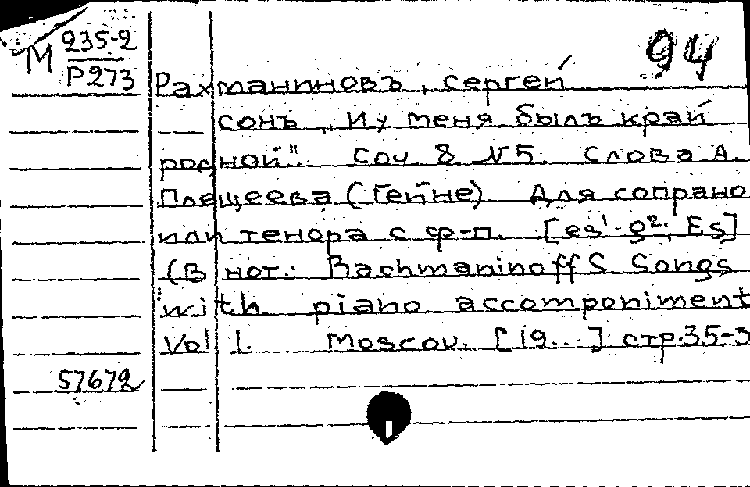 94
М 235-2
Р273
Рахманиновъ, Сергей
Сонъ „И у меня былъ край
родной". Соч 8 №5. Слова А.
Плещеева (Гейне). Для сопрано
или тенора с ф-п. [es¹-g². Es]
(В нот.: Rachmaninoff S Songs
with piano accomponiment
Vol 1. Moscou. [19...] стр.35-3
57672